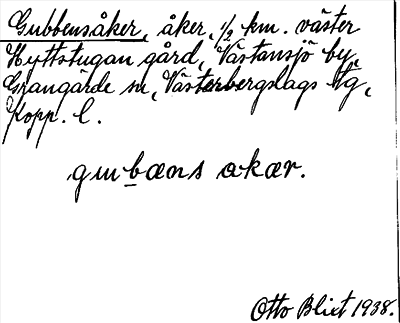 Gubbensåker, åker, 1/2 km. väster
Hyttstugan gård, Västansjö by,
Grangärde sn, Västerbergslags tg,
Kopp. l.
gmbæns akær.
Otto Blixt 1938.